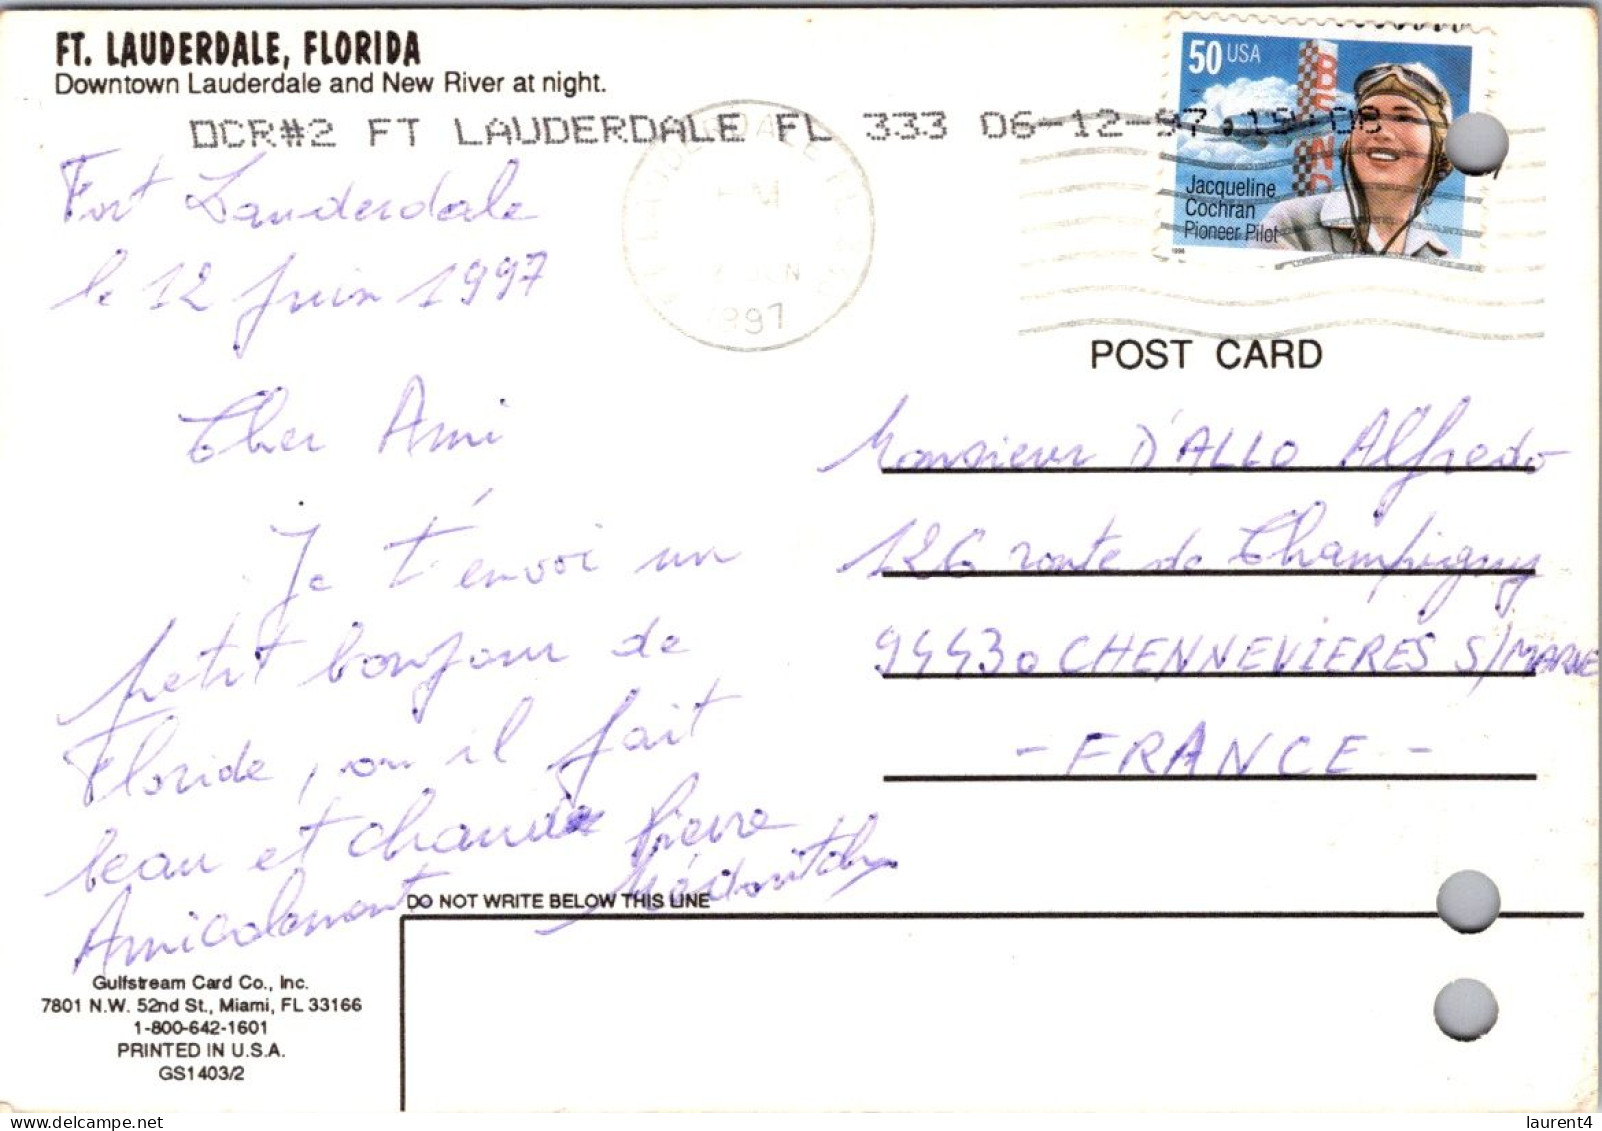 FT. LAUDERDALE, FLORIDA
Downtown Lauderdale and New River at night.
OCR#2 FT LAUDERDALE FL 333 06-12-97 19:08
50 USA
BEND
Jacqueline
Cochran
Pioneer Pilot
1996
1997
Fort Lauderdale
le 12 juin 1997
Cher Ami
Je t'envoi un
petit bonjour de
Floride, ou il fait
beau et chaud
Amicalement
Pierre
POST CARD
Monsieur D'ALLO Alfredo
126 route de Champigny
94430 CHENNEVIERES S/MARNE
- FRANCE -
DO NOT WRITE BELOW THIS LINE
Gulfstream Card Co., Inc.
7801 N.W. 52nd St., Miami, FL 33166
1-800-642-1601
PRINTED IN U.S.A.
GS1403/2
laurent4